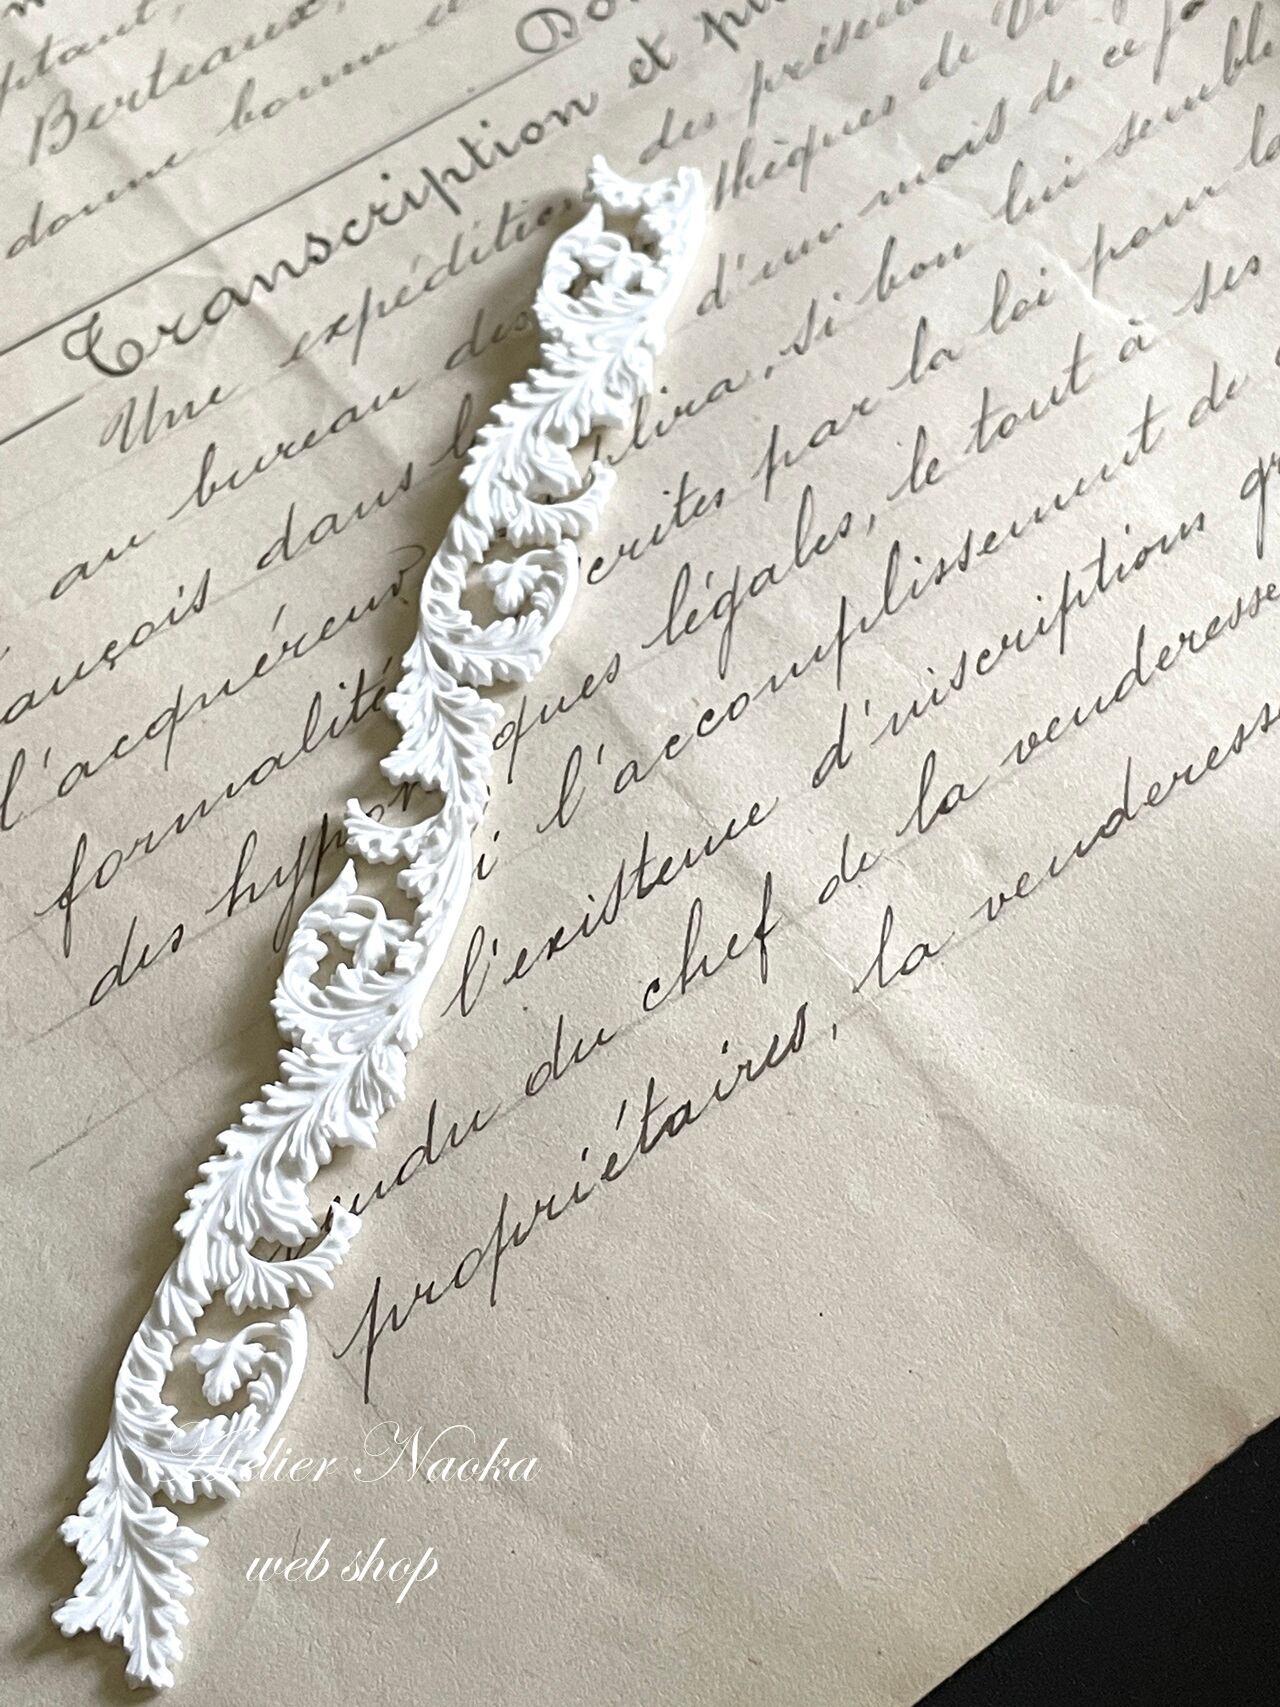 Berteaux,
donne bonne et
Transcription et pu
Une expédition des présen
au bureau des thèques de
ançois dans l d'un mois de ce jo
l'acquéreur plira, si bon lui semble
formalité crites par la loi pour la
des hypo ques légales, le tout à ses
i l'accomplissement de
l'existence d'inscriptions gr
du chef de la venderesse
propriétaires, la venderess
Atelier Naoka
web shop